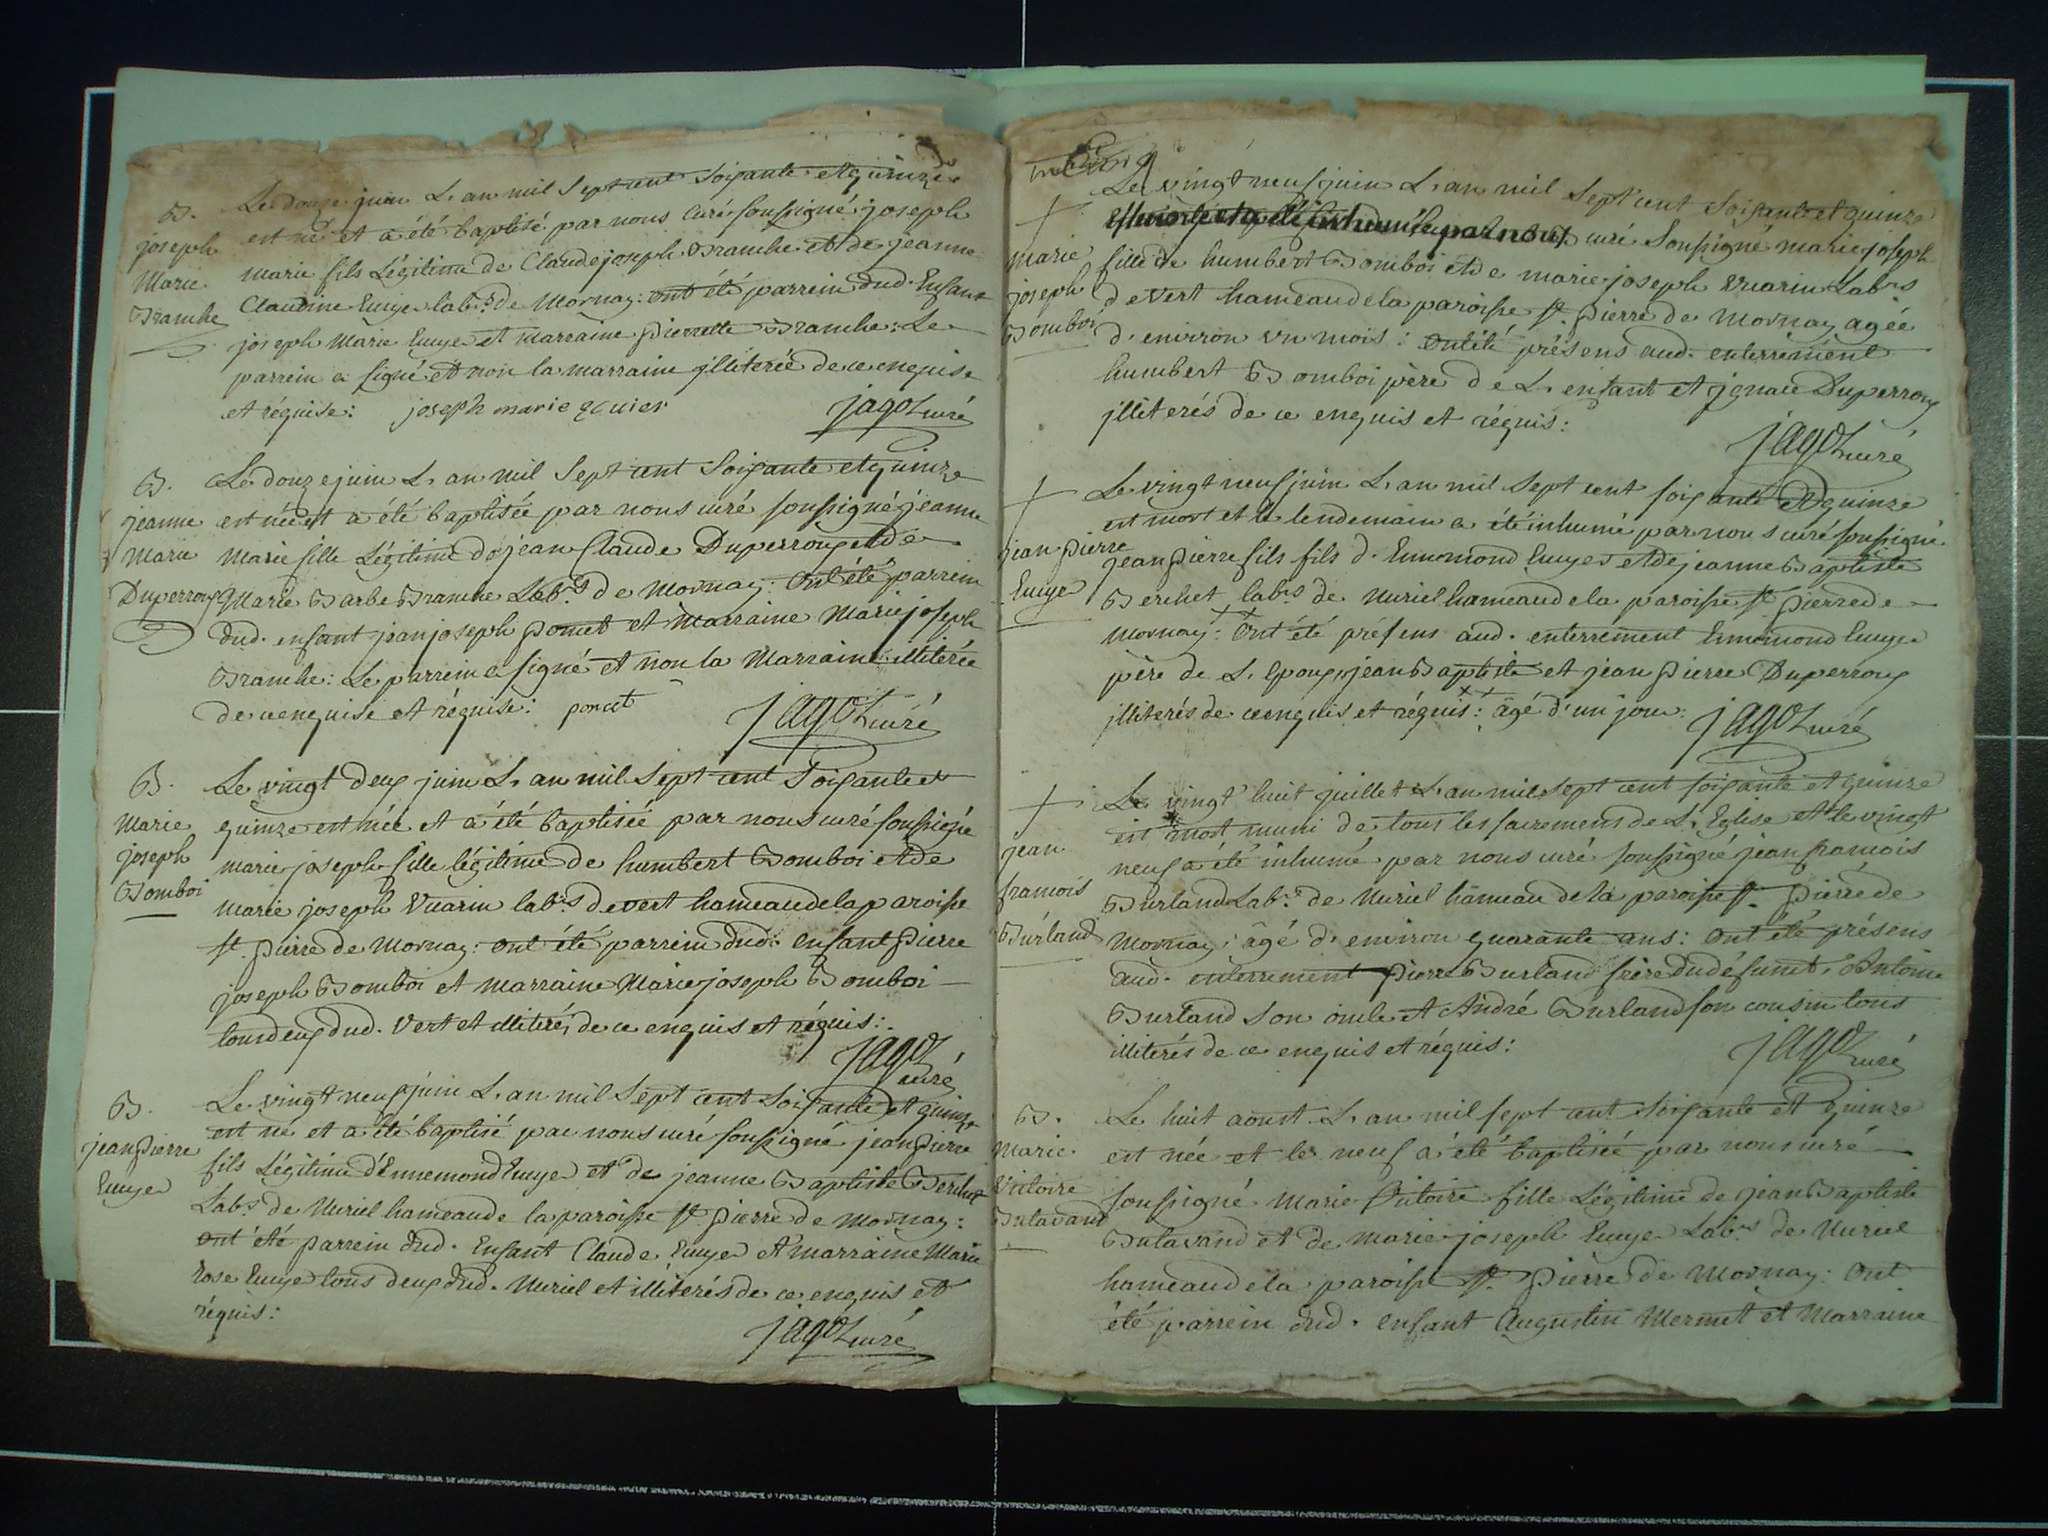 B.
joseph
Marie
Branche
Le douze juin L'an mil sept cent soixante et quinze
est né et a été baptisé par nous curé soussigné joseph
marie fils Légitime de Claude joseph Branche et de jeanne
Claudine Cuyer lab.rs de Mornay: ont été parrein dud. Enfant
joseph Marie Cuyer et Marraine pierrette Branche: Le
parrein a signé et non la marraine illiterée de ce enquise
et réquise: joseph marie
jagot curé
B.
jeanne
Marie
Duperroux
Le douze juin L'an mil sept cent soixante et quinze
est née et a été baptisée par nous curé soussigné jeanne
Marie fille Légitime de jean Claude Duperroux et de
Marie Barbe Branche Lab.rs de Mornay: ont été parrein
dud. enfant jean joseph poncet et Marraine Marie joseph
Branche: Le parrein a signé et non la Marraine illiterée
de ce enquise et réquise: poncet
jagot curé
B.
Marie
joseph
Bomboi
Le vingt deux juin L'an mil sept cent soixante et
quinze est née et a été baptisée par nous curé soussigné
marie joseph fille légitime de humbert Bomboi et de
Marie joseph Vuarin lab.rs de vert hameau de la paroisse
st. pierre de Mornay: ont été parrein dud. enfant pierre
joseph Bomboi et Marraine Marie joseph Bomboi
tous deux dud. Vert et illiterés de ce enquis et réquis:
jagot
curé
B.
jean pierre
Cuyer
Le vingt neuf juin L'an mil sept cent soixante et quinze
est né et a été baptisé par nous curé soussigné jean pierre
fils Légitime d'Ennemond Cuyer et de jeanne Baptiste Berchet
Lab.rs de Nuriel hameau de la paroisse st pierre de Mornay:
ont été parrein dud. Enfant Claude Cuyer et marraine Marie
rose Cuyer tous deux dud. Nuriel et illiterés de ce enquis et
réquis:
jagot curé
+
marie
joseph
Bomboi
Le vingt neuf juin L'an mil sept cent soixante et quinze
est morte et a été inhumée par nous curé soussigné marie joseph
fille de humbert Bomboi et de marie joseph Vuarin Lab.rs
de Vert hameau de la paroisse st. pierre de Mornay agée
d'environ un mois: ont été présens aud. enterrement
humbert Bomboi père de L'enfant et ignace Duperroux
illiterés de ce enquis et réquis:
jagot curé
+
jean pierre
Cuyer
Le vingt neuf juin L'an mil sept cent soixante et quinze
est mort et le lendemain a été inhumé par nous curé soussigné
jean pierre fils fils d'Ennemond Cuyer et de jeanne Baptiste
Berchet lab.rs de Nuriel hameau de la paroisse st pierre de
Mornay: ont été présens aud. enterrement Ennemond Cuyer
père de L'epoux, jean Baptiste et jean pierre Duperroux
illiterés de ce enquis et réquis: âgé d'un jour.
jagot curé
+
jean
francois
Burland
Le vingt huit juillet L'an mil sept cent soixante et quinze
est mort muni de tous les sacremens de L'Eglise et le vingt
neuf a été inhumé par nous curé soussigné jean francois
Burland Lab.r de Nuriel hameau de la paroisse st. pierre de
Mornay, âgé d'environ quarante ans: ont été présens
aud. enterrement pierre Burland frère du défunt, Antoine
Burland son oncle et André Burland son cousin tous
illiterés de ce enquis et réquis:
jagot curé
B.
Marie
Victoire
Butavand
Le huit aoust L'an mil sept cent soixante et quinze
est née et le neuf a été baptisée par nous curé
soussigné Marie Victoire fille Légitime de jean Baptiste
Butavand et de Marie joseph Cuyer Lab.rs de Nuriel
hameau de la paroisse st. pierre de Mornay: Ont
été parrein dud. enfant Augustin Mermet et Marraine